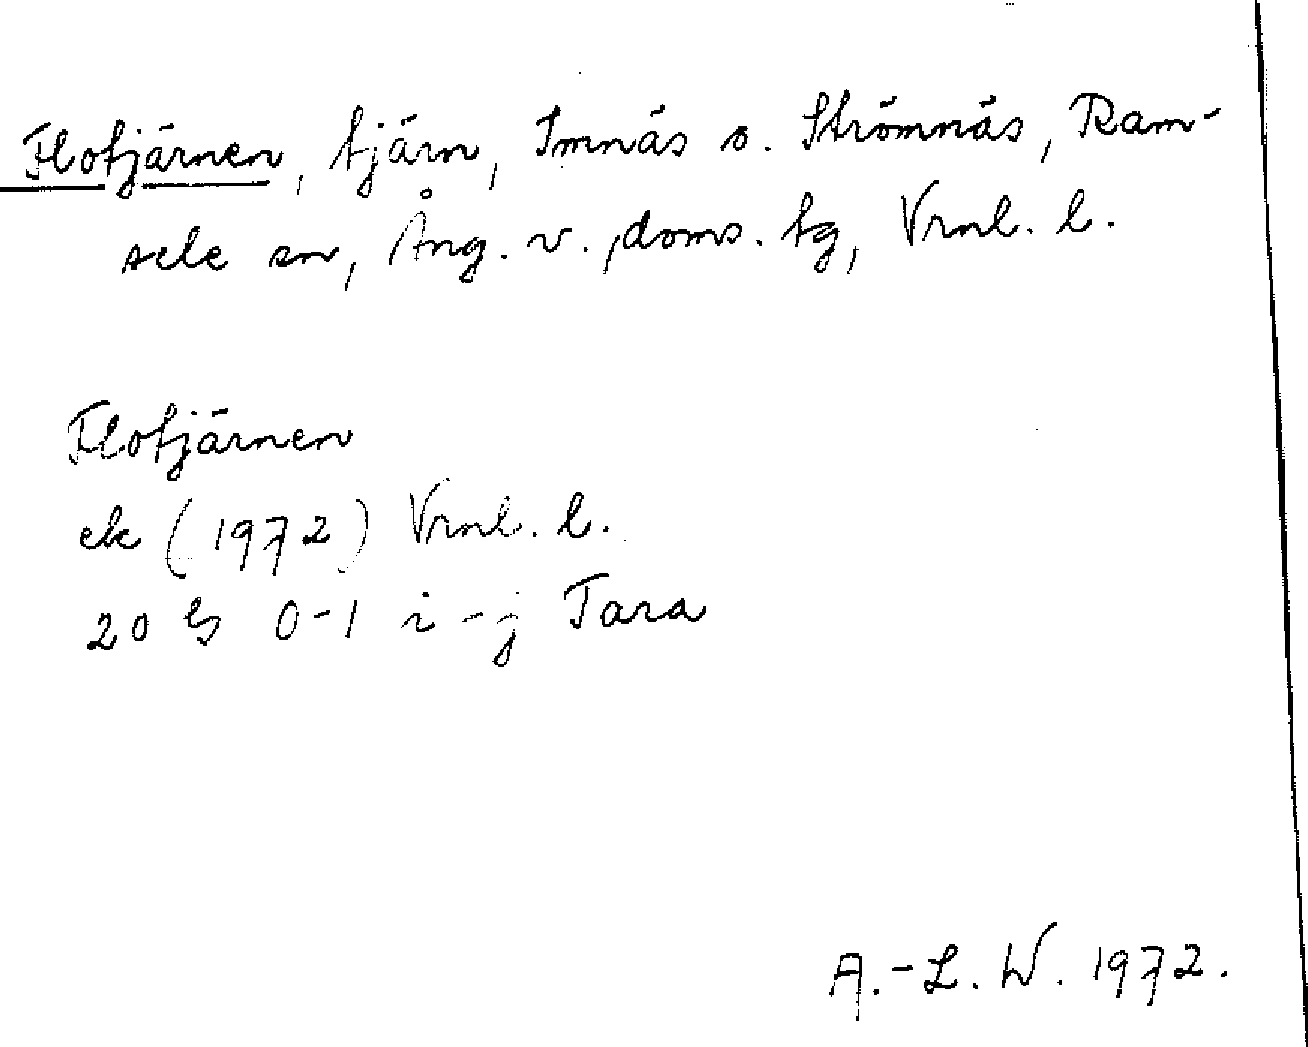 Flotjärnen, tjärn, Imnäs o. Strömnäs, Ram-
sele sn, Ång. v. doms. tg, Vrnl. l.
Flotjärnen
ek (1972) Vrnl. l.
20 G 0-1 i-j Tara
A.-L. W. 1972.